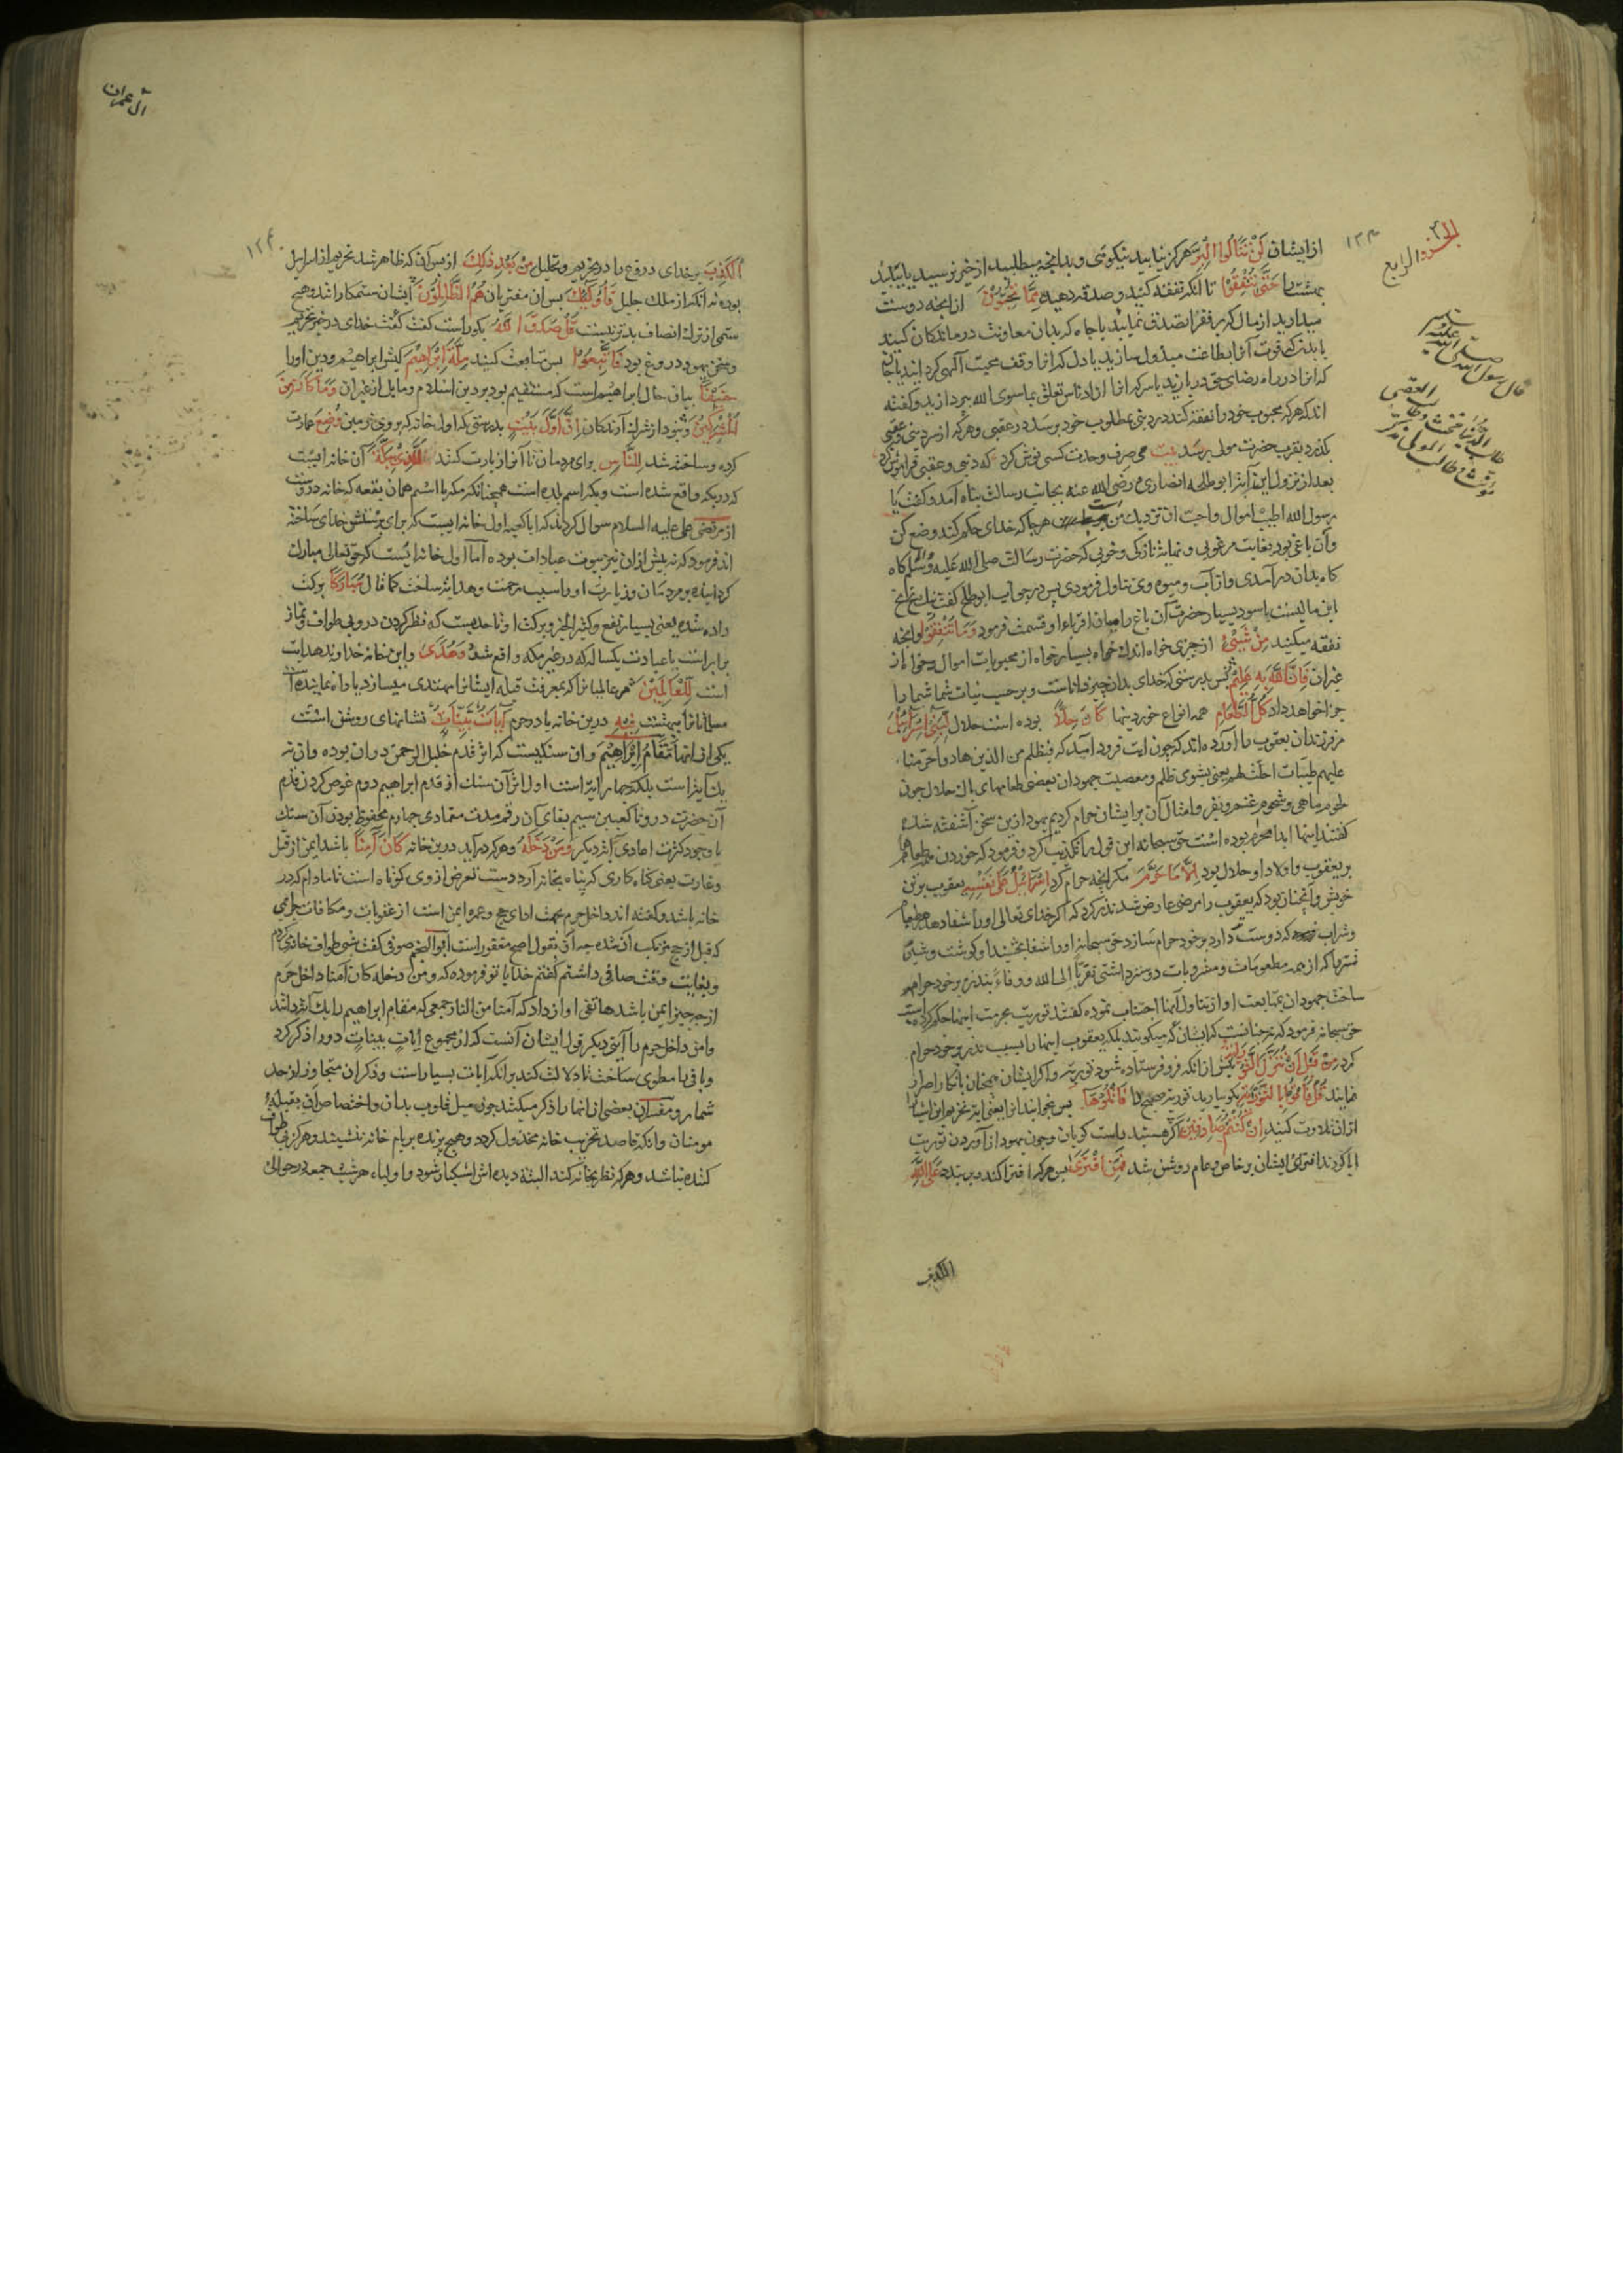 الجزو الرابع
قال رسول الله صلى الله عليه وسلم
طالب الدنيا مخنث وطالب العقبى
مؤنث وطالب المولى مذكر
از ایشان لَنْ تَنَالُوا الْبِرَّ هرکز نیابید نیکوئی و بدانچه میطلبید از خیر نرسید یا نیابید
بهشت را حَتَّى تُنْفِقُوا تا انکه نفقه کنید و صدقه دهید مِمَّا تُحِبُّونَ از انچه دوست
میدارید از مال که بر فقرا تصدق نمایید یا جاه که بدان معاونت درماندکان کنید
یا بدن که قوت انرا بطاعت مبذول سازید یا دل که انرا وقف محبت الهی کردانید یا جان
که انرا در راه رضای حق دربازید یا سر که انرا از ادناس تعلق بماسوی الله بپردازید و کفته
اند که هر که محبوب خود را نفقه کند در دنیی بمطلوب خود برسد در عقبی و هر که از سر دنیی و عقبی
بکذرد بقرب حضرت مولی برسد بیت می صرف وحدت کسی نوش کرد که دنیی و عقبی فراموش کرد
بعد از نزول این آیه ابو طلحه انصاری رضی الله عنه بجانب رسالت پناه آمد و کفت یا
رسول الله اطیب اموال و احب ان نزدیک من است هر جا که خدای حکم کند وضع کن
و آن باغی بود بغایت مرغوبی و نهایت نازکی و خوبی که حضرت رسالت صلی الله علیه وسلم کاه
کاه بدان درآمدی و از آب و میوه وی تناول فرمودی پس در جواب ابو طلحه کفت بخ بخ
این مالیست با سود بسیار حضرت آن باغ را میان اقرباء او قسمت فرمود وَمَا تُنْفِقُوا و انچه
نفقه میکنید مِنْ شَيْءٍ از چیزی خواه اندک خواه بسیار خواه از محبوبات اموال و خواه از
غیر ان فَإِنَّ اللَّهَ بِهِ عَلِيمٌ پس بدرستی که خدای بدان چیز داناست و بر حسب نیات شما شما را
جزا خواهد داد كُلُّ الطَّعَامِ همه انواع خوردنیها كَانَ حِلًّا بوده است حلال لِبَنِي إِسْرَائِيلَ
مر فرزندان یعقوب را آورده اند که چون ایت فرود امد که فبظلم من الذین هادوا حرمنا
علیهم طیبات احلت لهم یعنی بشومی ظلم و معصیت جهودان بعضی طعامهای پاک حلال چون
لحوم ماهی و شحوم غنم و بقر و امثال آن بر ایشان حرام کردیم یهود ازین سخن آشفته شده
کفتند اینها ابدا محرم بوده است حق سبحانه این قول را تکذیب کرد و فرمود که خوردن همه طعامها
بر یعقوب و اولاد او حلال بود إِلَّا مَا حَرَّمَ مکر انچه حرام کرد إِسْرَائِيلُ عَلَى نَفْسِهِ یعقوب بر تن
خویش و آنچنان بود که یعقوب را مرضی عارض شد نذر کرد که اکر خدای تعالی او را شفا دهد هر طعام
و شراب که دوست دارد بر خود حرام سازد حق سبحانه او را شفا بخشید او کوشت و شیر
شتر را که از همه مطعومات و مشروبات دوستر داشتی تقربا الی الله و وفاء بنذر بر خود حرام
ساخت جهودان بمتابعت او از تناول آنها اجتناب نموده کفتند توریت بحرمت اینها حکم کرده است
حق سبحانه فرمود که نه چنانست که ایشان میکویند بلکه یعقوب اینها را بسبب نذر بر خود حرام
کرد مِنْ قَبْلِ أَنْ تُنَزَّلَ التَّوْرَاةُ پیش از انکه فرو فرستاده شود توریة و اکر ایشان همچنان بانکار اصرار
نمایند قُلْ فَأْتُوا بِالتَّوْرَاةِ بکو بیارید توریة صحیح را فَاتْلُوهَا پس بخوانید انرا یعنی ایة تحریم این اشیا
از ان تلاوت کنید إِنْ كُنْتُمْ صَادِقِينَ اکر هستید راست کویان و چون یهود از آوردن توریت
ابا کردند افترای ایشان بر خاص و عام روشن شد فَمَنِ افْتَرَى پس هر که افترا کند و بربندد عَلَى اللَّهِ
الکذب
آل عمران
الْكَذِبَ بر خدای دروغ را در تحریم و تحلیل مِنْ بَعْدِ ذَلِكَ از پس آن که ظاهر شد تحریم از اسرایل
بوده نه انکه از ملک جلیل فَأُولَئِكَ پس ان مفتریان هُمُ الظَّالِمُونَ ایشان ستمکارانند و هیچ
ستمی از ترک انصاف بدتر نیست قُلْ صَدَقَ اللَّهُ بکو راست کفت کفت خدای در خبر تحریم
و سخن یهود دروغ بود فَاتَّبِعُوا پس متابعت کنید مِلَّةَ إِبْرَاهِيمَ کیش ابراهیم و دین او را
حَنِيفًا بیان حال ابراهیم است که مستقیم بود بر دین اسلام و مایل از غیر ان وَمَا كَانَ مِنَ
الْمُشْرِكِينَ و نبود از شرک آرندکان إِنَّ أَوَّلَ بَيْتٍ بدرستی که اول خانه که بر روی زمین وُضِعَ عمارت
کرده و ساخته شد لِلنَّاسِ برای مردمان تا آنرا زیارت کنند لَلَّذِي بِبَكَّةَ آن خانه ایست
که در بکه واقع شده است و بکه اسم بلده است همچنانکه مکه یا اسم همان بقعه که خانه دروست
از مرتضی علی علیه السلام سوال کردند که ایا کعبه اول خانه ایست که برای پرستش خدای ساخته
اند فرمود که نه پیش از ان نیز بیوت عبادات بوده اما اول خانه ایست که حق تعالی مبارک
کردانیده بر مردمان و زیارت او را سبب رحمت و هدایة ساخت کما قال مُبَارَكًا برکت
داده شده یعنی بسیار نفع و کثیر الخیر و برکت او تا حدیست که نظر کردن در وی بی طواف و نماز
برابر است با عبادت یکساله که در غیر مکه واقع شد وَهُدًى و این خانه خداوند هدایت
است لِلْعَالَمِينَ مر عالمیانرا که بمعرفت قبله ایشانرا مهتدی میسازد یا راه نماینده است
مسلمانانرا ببهشت فِيهِ درین خانه یا در حرم آيَاتٌ بَيِّنَاتٌ نشانهای روشن است
یکی از انها مَقَامُ إِبْرَاهِيمَ و ان سنکیست که اثر قدم خلیل الرحمن دران بوده و ان نه
یک آیة است بلکه چهار ایة است اول اثر آن سنک از قدم ابراهیم دوم غوص کردن قدم
آن حضرت درو تا کعبین سیم بقای آن رقم مدت متمادی چهارم محفوظ بودن آن سنک
با وجود کثرت اعادی آیة دیکر وَمَنْ دَخَلَهُ و هر که درآید درین خانه كَانَ آمِنًا باشد ایمن از قتل
و غارت یعنی کناه کاری که پناه بخانه آرد دست تعرض از وی کوتاه است تا مادام که در
خانه باشد و کفته اند داخل حرم بجهت ادای حج و عمره ایمن است از عقوبات و مکافات جرایمی
که قبل از حج مرتکب آن شده چه آن بقول اصح مغفور است ابو النجم صوفی کفت شبی طواف خانه میکردم
و بغایت وقت صافی داشتم کفتم خدایا تو فرموده که و من دخله کان آمنا داخل حرم
از چه چیز ایمن باشد هاتفی اواز داد که آمنا من النار جمعی که مقام ابراهیم را یک آیة دانند
و امن داخل حرم را آیتی دیکر قول ایشان آنست که از مجموع ایات بینات دو را ذکر کرد
و باقی را مطوی ساخت تا دلالت کند برانکه آیات بسیار است و ذکر ان متجاوز از حد
شمار و مفسران بعضی از انها را ذکر میکنند چون میل قلوب بدان و اختصاص آن بقبله
مومنان و انکه قاصد تخریب خانه مخذول کردد و هیچ پرنده بر بام خانه ننشیند و هرکز بی طواف
کننده نباشد و هر که نظر بخانه کند البته دیده اش اشکبار شود و اولیاء هر شب جمعه در حوالی